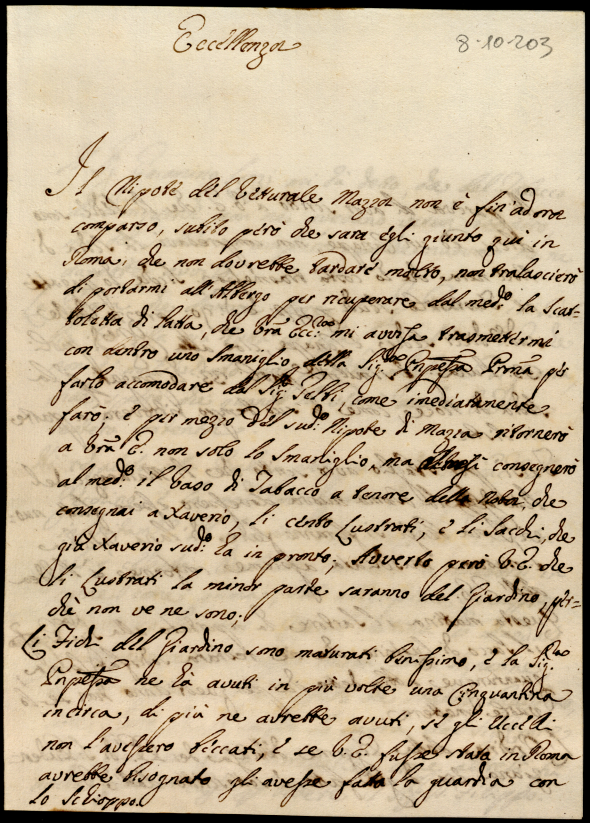 Eccellenza
8-10-203
Il Nipote del Vetturale Mazza non è fin'adora
comparso, subito però che sarà egli giunto quì in
Roma; che non dovrebbe tardare molto, non tralascierò
di portarmi all'Albergo per ricuperare dal med.o la Scat-
toletta di latta, che Vra Ecc.za mi avvisa trasmettermi
con dentro uno Smaniglio della Sig.ra Pnpessa Pnma per
farlo accomodare dal Sig.r, come imediatamente
farò; e per mezzo del sud.o Nipote di Mazza ritornerò
a Vra E. non solo lo Smaniglio, ma altresì consegnerò
al med.o il Vaso di Tabacco a tenore della Nota, che
consegnai a Xaverio, li cento Lustrati, e li Sacchi, che
già Xaverio sud.o hà in pronto; Averto però V.E. che
li Lustrati la minor parte saranno del Giardino, per-
chè non ve ne sono.
Li Fichi del Giardino sono maturati benissimo, e la Sig.ra
Pnpessa ne hà avuti in più volte una Cinquantina
incirca, di più ne avrebbe avuti, se gli Uccelli
non l'avessero biccati, e se V.E. fusse stata in Roma
avrebbe bisognato gli avesse fatta la guardia con
lo Schioppo.